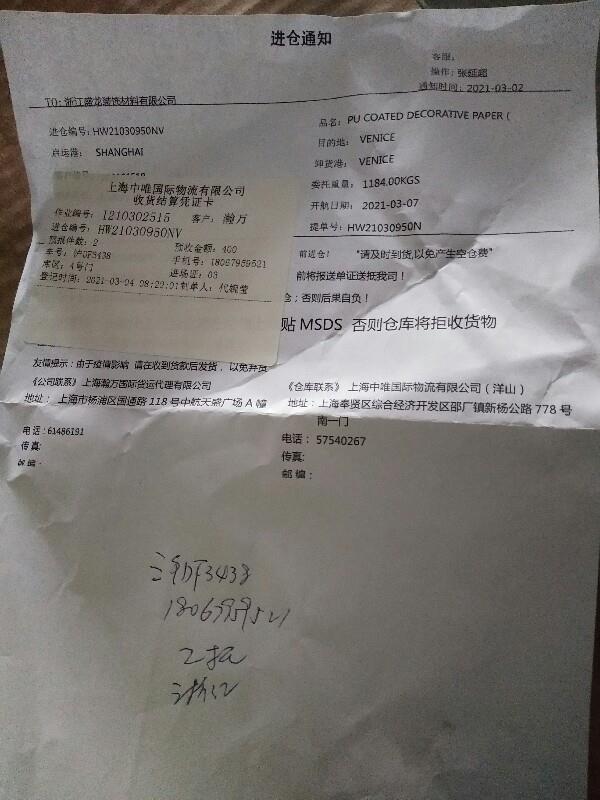 进仓通知
客服:
操作: 张延超
通知时间: 2021-03-02
TO: 浙江盛龙装饰材料有限公司
进仓编号: HW21030950NV
品名: PU COATED DECORATIVE PAPER (
启运港: SHANGHAI
目的地: VENICE
卸货港: VENICE
委托重量: 1184.00KGS
开航日期: 2021-03-07
提单号: HW21030950N
上海中唯国际物流有限公司
收货结算凭证卡
作业编号: I210302515 客户: 瀚万
进仓编号: HW21030950NV
预报件数: 2 预收金额: 400
车号: 沪DF3438 手机号: 18067959521
库区: 4号门 进场证: 03
登记时间: 2021-03-04 08:29:01 制单人: 代婉莹
前进仓! "请及时到货,以免产生空仓费"
前将报送单证送抵我司!
仓;否则后果自负!
贴 MSDS 否则仓库将拒收货物
友情提示:由于疫情影响 请在收到货款后发货, 以免弃货
《公司联系》上海瀚万国际货运代理有限公司
地址: 上海市杨浦区国通路 118 号中航天盛广场 A 幢
电话:61486191
传真:
邮编:
《仓库联系》上海中唯国际物流有限公司(洋山)
地址:上海奉贤区综合经济开发区邵厂镇新杨公路 778 号
南一门
电话: 57540267
传真:
邮编:
沪DF3438
18067959521